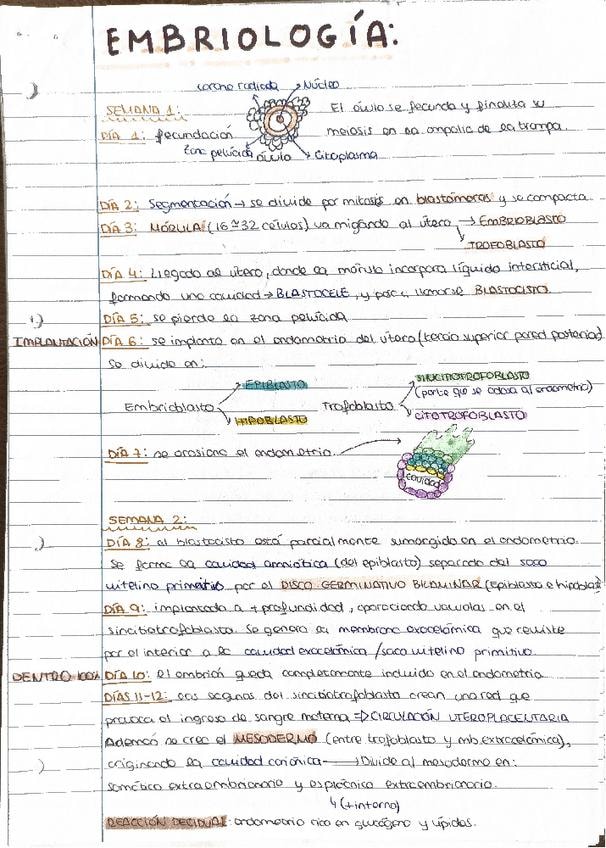 EMBRIOLOGÍA:
corona radiada
Núcleo
SEMANA 1:
El óvulo se fecunda y finaliza su
DÍA 1: fecundación
meiosis en la ampolla de la trompa.
Zona pelúcida
óvulo
Citoplasma
DÍA 2: Segmentación → se divide por mitosis en blastómeros y se compacta.
DÍA 3: MÓRULA (16 ≅ 32 células) va migando al útero → EMBRIOBLASTO
TROFOBLASTO
DÍA 4: Llegada al útero, donde la mórula incorpora líquido intersticial,
formando una cavidad → BLASTOCELE, y pasa a llamarse BLASTOCISTO.
DÍA 5: se pierde la zona pelúcida
IMPLANTACIÓN DÍA 6: se implanta en el endometrio del útero (tercio superior pared posterior)
Se divide en:
EPIBLASTO
SINCITIOTROFOBLASTO
(parte que se adosa al endometrio)
Embrioblasto
Trofoblasto
HIPOBLASTO
CITOTROFOBLASTO
DÍA 7: se erosiona el endometrio
cavidad
SEMANA 2:
DÍA 8: al blastocisto está parcialmente sumergido en el endometrio.
Se forma la cavidad amniótica (del epiblasto) separada del saco
vitelino primitivo por el DISCO GERMINATIVO BILAMINAR (Epiblasto e hipoblasto)
DÍA 9: implantado a + profundidad, apareciendo vacuolas en el
sincitiotrofoblasto. Se genera la membrana exocelómica que reviste
por el interior a la cavidad exocelómica / saco vitelino primitivo.
DENTRO 100% DÍA 10: el embrión queda completamente incluido en el endometrio
DÍAS 11-12: las lagunas del sincitiotrofoblasto crean una red que
provoca el ingreso de sangre materna ⇒ CIRCULACIÓN UTEROPLACENTARIA
Además se crea el MESODERMO (entre trofoblasto y mb. extracelómica),
originando la cavidad coriónica → Divide al mesodermo en:
somático extraembrionario y esplácnico extraembrionario.
↳ (+ interno)
REACCIÓN DECIDUAL: endometrio rico en glucógeno y lípidos.